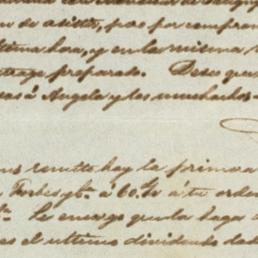 de asistir, pero por compromi
ltima hora, y en la misma
trago preparado. Deseo que
sas á Angela y los muchachos
remito hoy la primera
Forbes y Cª. á 60 d/v á tu orden
Le encargo que la haga
es el ultimo dividendo dad